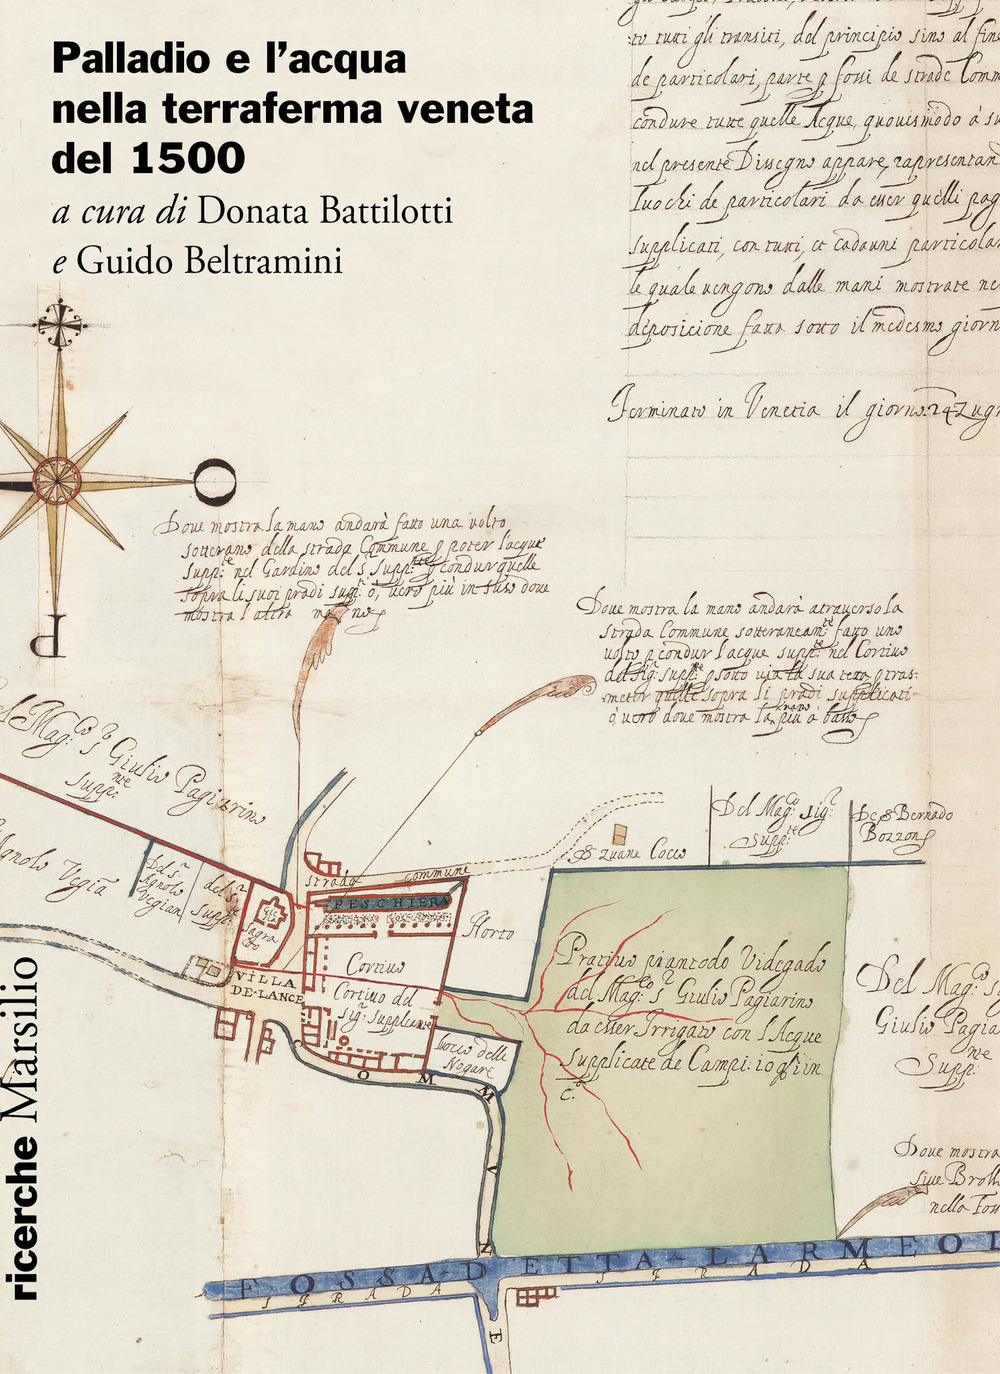 Palladio e l'acqua
nella terraferma veneta
del 1500
a cura di Donata Battilotti
e Guido Beltramini
to tutti gli transiti, del principio sino al fine
de particolari, parte p fossi de strade Comm
condure tutte quelle Acque, quouismodo à su
nel presente Dissegno appare, rapresentan
luochi de particolari da esser quelli pag
supplicati, con tutti, et cadauni particolar
le quale uengono dalle mani mostrate ne
deposicione fatta sotto il medesmo giorn
Terminato in Venetia il giorno 24 Zugn
O
P
Doue mostra la mano andarà fatto una uolto
sotterano della strada Commune p poter l'acque
suppte nel Gardino del s. suppte p condur quelle
sopra li suoi pradi suppti ò, uero più in suso doue
mostra l'altra mano
Doue mostra la mano andarà atrauerso la
strada Commune sotteraneamte fatto uno
uolto p condur l'acque suppte nel Cortiuo
del sigr suppte p sotto uia la sua terra p tras-
metter quelle sopra li pradi supplicati
ò uero doue mostra la mano più à basso
el Magco sr Giulio Pagiarino
suppnte
Agnolo Vegia
Del sr
Agnolo
Vegian
del sr
suppte
Sagra
to
strada commune
PESCHIERA
Horto
Cortiuo
Cortiuo del
sigr supplcante
VILLA
DE LANCE
Loco delle
Nogare
COMMVNE
Sr Zuane Cocco
Del Magco sigr
suppte
De sr Bernado
Bozzon
Pratiuo piantado Videgado
del Magco sr Giulio Pagiarino
da esser Irrigato con l'Acque
supplicate de Campi: 10 ꝗli in
Del Magco s
Giulio Pagia
suppnte
Doue mostra
siue Broll
nella Foss
FOSSA DETTA LARMEOL
STRADA
STRADA
ricerche Marsilio